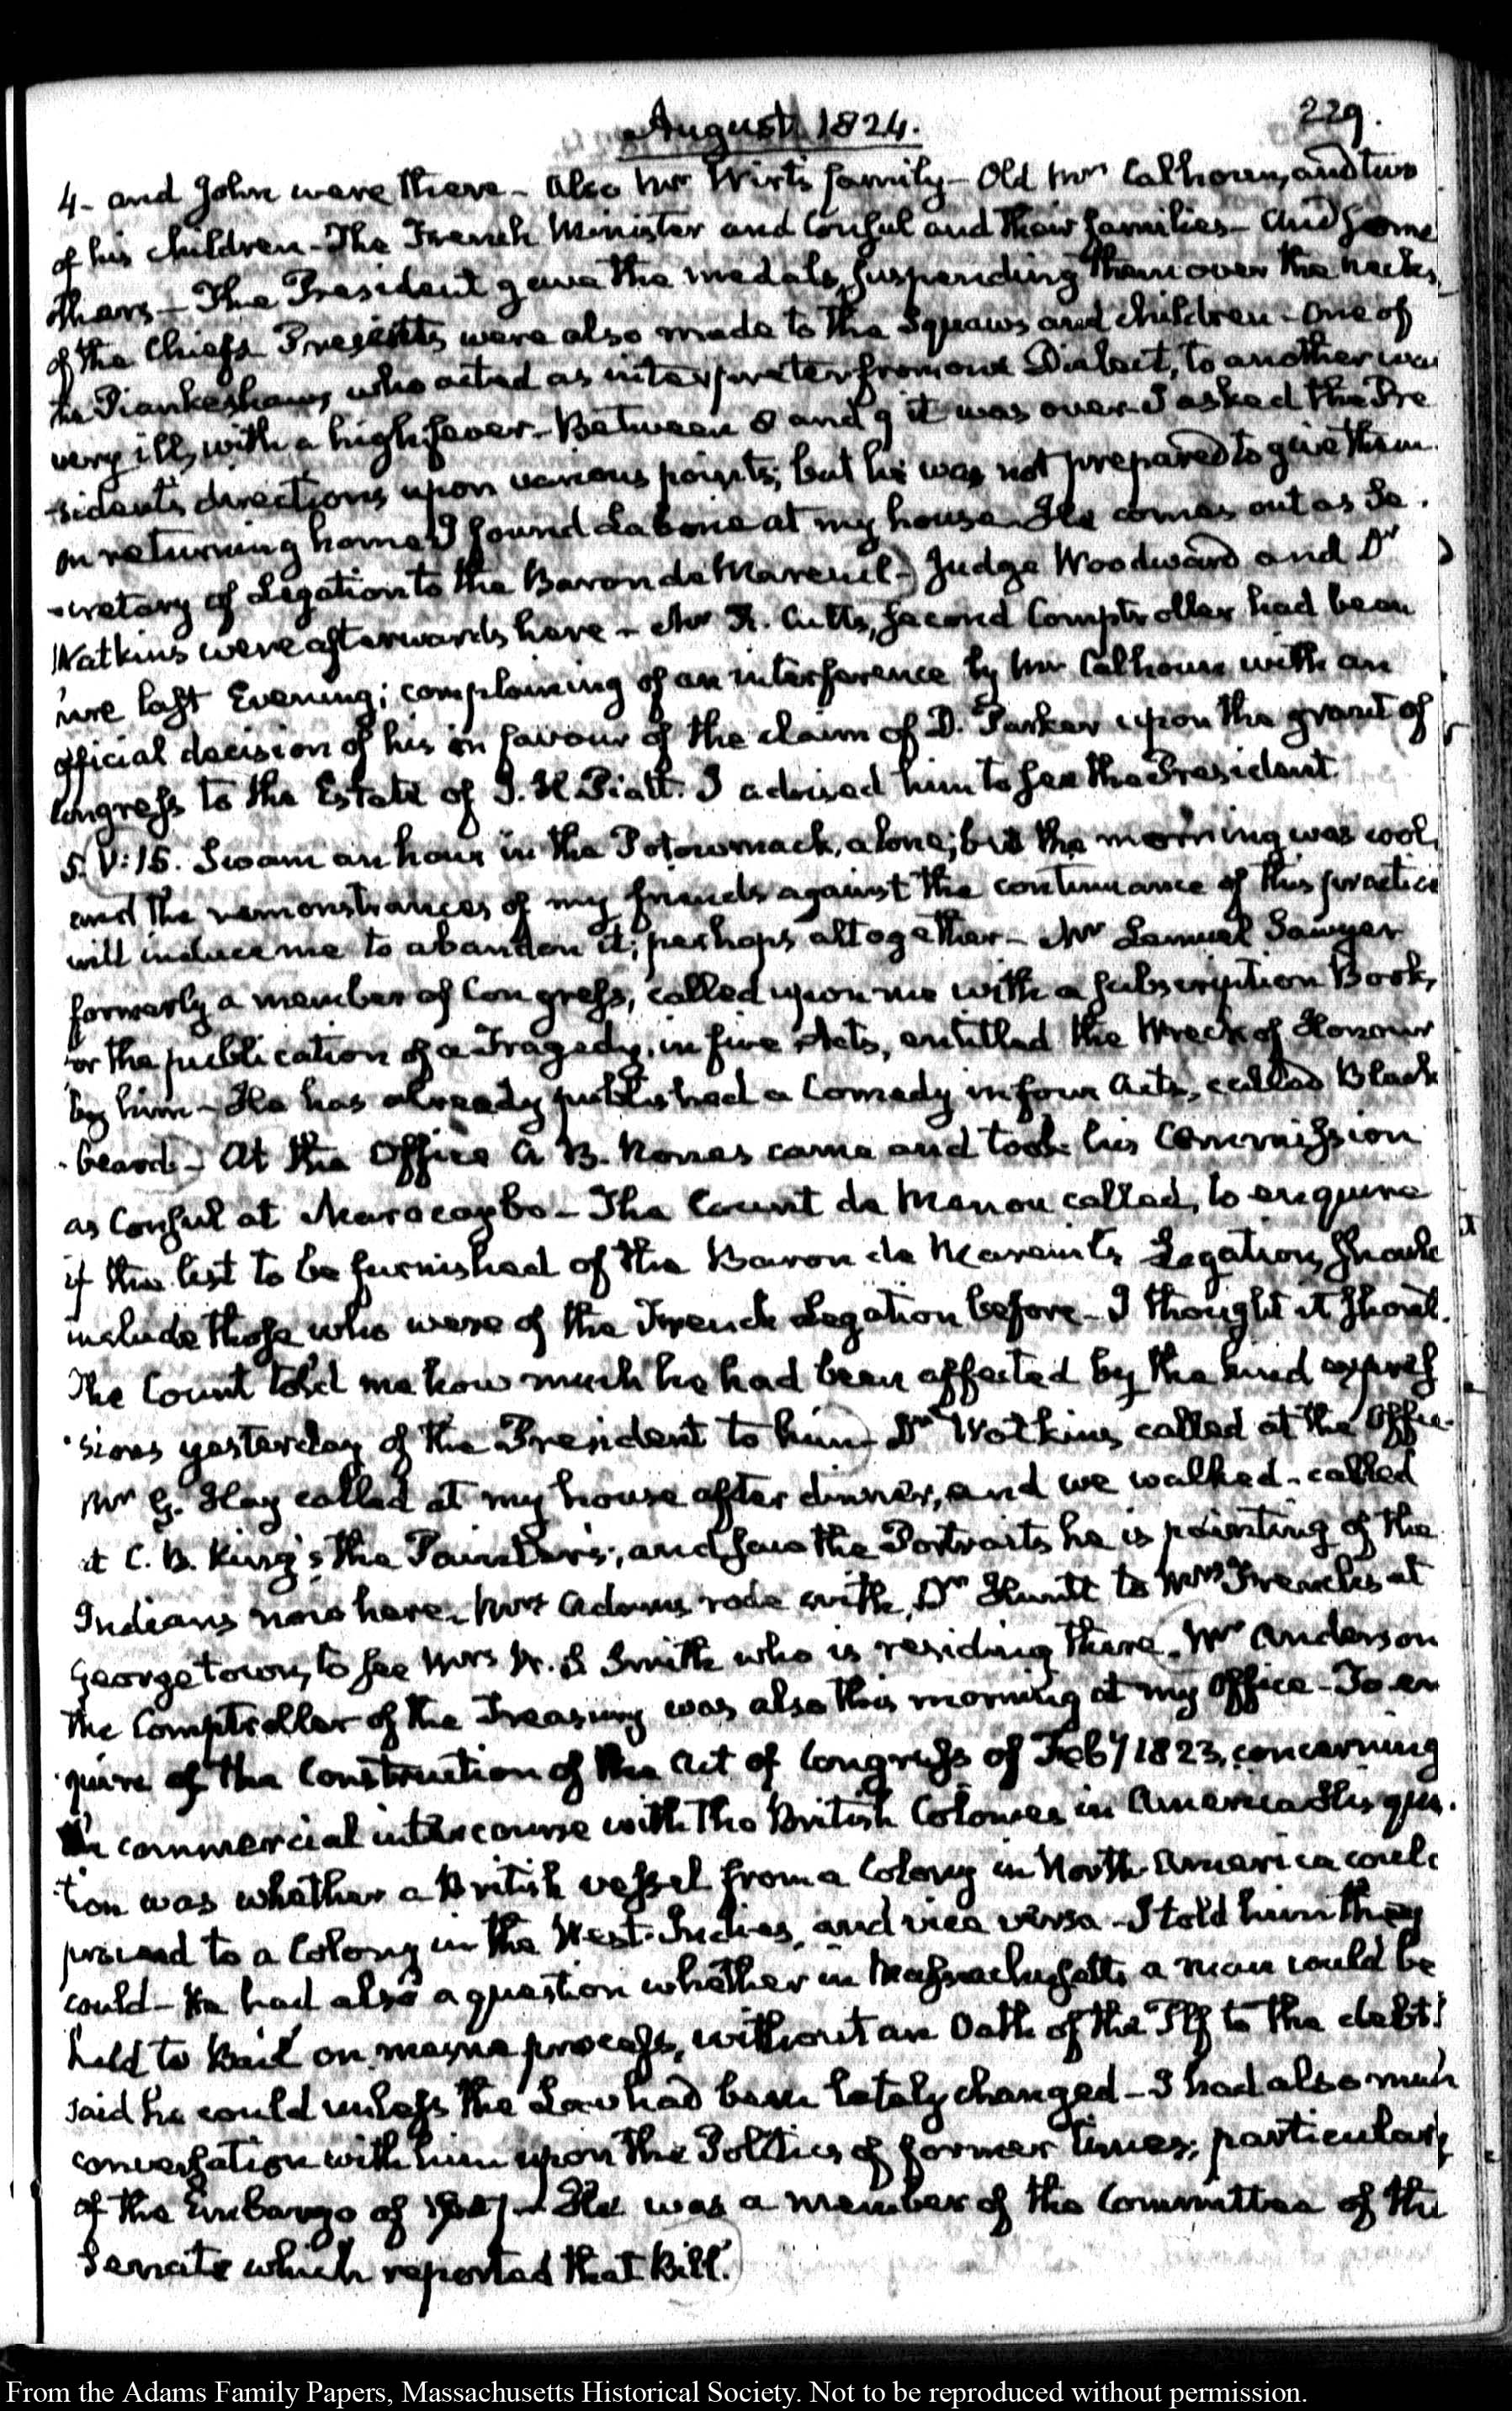 August 1824.
229.
4- and John were there - Also Mr Wirt's family - Old Mrs Calhoun, and two
of his children - The French Minister and Consul and their families - And some
others - The President gave the medals, suspending them over the necks
of the Chiefs Presents were also made to the Squaws and children - One of
the Piankeshaws, who acted as interpreter from one Dialect, to another was
very ill, with a high fever - Between 8 and 9 it was over - I asked the Pre
-sident's directions upon various points; but he was not prepared to give them.
On returning home I found Laborie at my house - He comes out as Se.
-cretary of Legation to the Baron de Mareuil - Judge Woodward and Dr
Watkins were afterwards here - Mr R. Cutts, second Comptroller had been
here last Evening; complaining of an interference by Mr Calhoun with an
official decision of his in favour of the claim of D. Parker upon the grant of
Congress to the Estate of J. H. Piatt. I advised him to see the President.
5. V:15. Swam an hour in the Potowmack, alone; but the morning was cool,
and the remonstrances of my friends against the continuance of this practice
will induce me to abandon it; perhaps altogether - Mr Lemuel Sawyer
formerly a member of Congress, called upon me with a subscription Book,
for the publication of a Tragedy, in five Acts, entitled the Wreck of Honour
by him - He has already published a Comedy in four Acts, called Black
-beard - At the Office A. B. Nones came and took his Commission
as Consul at Maracaybo - The Count de Menou called, to enquire
if the list to be furnished of the Baron de Mareuil's Legation, should
include those who were of the French Legation before - I thought it should.
The Count told me how much he had been affected by the kind expres
-sions yesterday of the President to him - Dr Watkins called at the Office
Mr G. Hay called at my house after dinner, and we walked - called
at C. B. King's the Painter's; and saw the Portraits he is painting of the
Indians now here. Mrs Adams rode with Dr Huntt to Mrs French's at
Georgetown, to see Mrs W. S Smith who is residing there. Mr Anderson
the Comptroller of the Treasury was also this morning at my Office - To en
-quire of the Construction of the Act of Congress of Feby 1823, concerning
the commercial intercourse with the British Colonies in America His ques-
-tion was whether a British vessel from a Colony in North America could
proceed to a Colony in the West-Indies, and vice versa - I told him they
could - He had also a question whether in Massachusetts a man could be
held to Bail on mesne process, without an Oath of the Plf to the debt I
said he could unless the Law had been lately changed - I had also much
conversation with him upon the Politics of former times; particularly
of the Embargo of 1807 - He was a member of the Committee of the
Senate which reported that Bill.
From the Adams Family Papers, Massachusetts Historical Society. Not to be reproduced without permission.